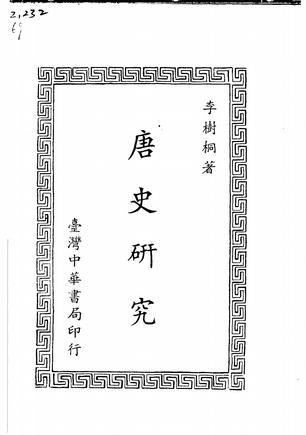 2,232
李樹桐著
唐史研究
臺灣中華書局印行